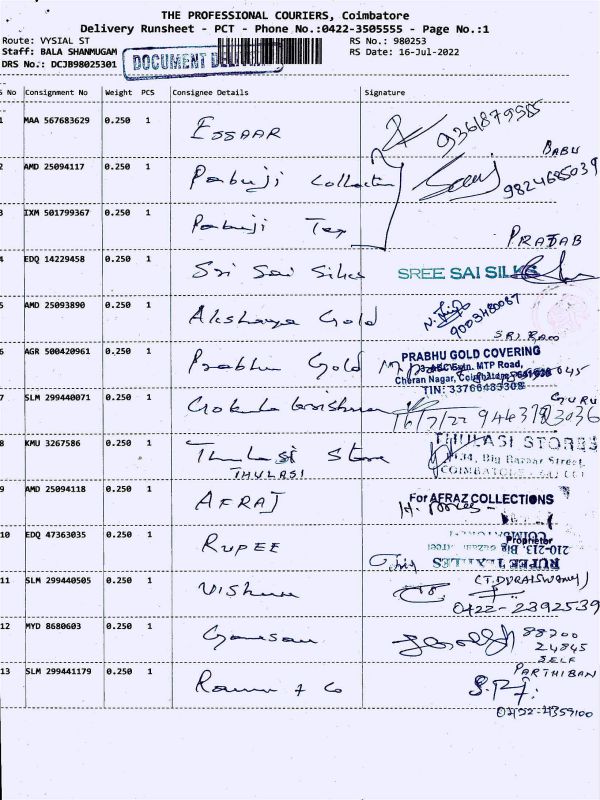 THE PROFESSIONAL COURIERS, Coimbatore
Delivery Runsheet - PCT - Phone No.:0422-3505555 - Page No.:1
Route: VYSIAL ST RS No.: 980253
Staff: BALA SHANMUGAM RS Date: 16-Jul-2022
DRS No.: DCJB98025301 DOCUMENT
S No Consignment No Weight PCS Consignee Details Signature
1 MAA 567683629 0.250 1 ESSAAR
BABU
2 AMD 25094117 0.250 1 Pabuji Collection 9824685039
3 IXM 501799367 0.250 1 Pabuji Tex
PRATAB
4 EDQ 14229458 0.250 1 Sri Sai Silks SREE SAI SILKS
5 AMD 25093890 0.250 1 Akshaya Gold 9003480067
SRI RAM
6 AGR 500420961 0.250 1 Prabhu Gold PRABHU GOLD COVERING
MTP Road,
Cheran Nagar,
TIN: 33766483308
GURU
7 SLM 299440071 0.250 1 Gokula Krishnan 16/7/22
8 KMU 3267586 0.250 1 Thulasi Store THULASI STORES
THULASI
Big Bazaar Street,
COIMBATORE
9 AMD 25094118 0.250 1 AFRAJ For AFRAZ COLLECTIONS
Proprietor
10 EDQ 47363035 0.250 1 RUPEE
COIMBATORE
210-213, Big Bazaar Street
RUPEE TEXTILES
11 SLM 299440505 0.250 1 Vishnu (T.DURAISWAMY)
0422-2392539
12 MYD 8680603 0.250 1 Ganesan 88200
24845
SELF
PARTHIBAN
13 SLM 299441179 0.250 1 Ramu & Co
0422-4359100